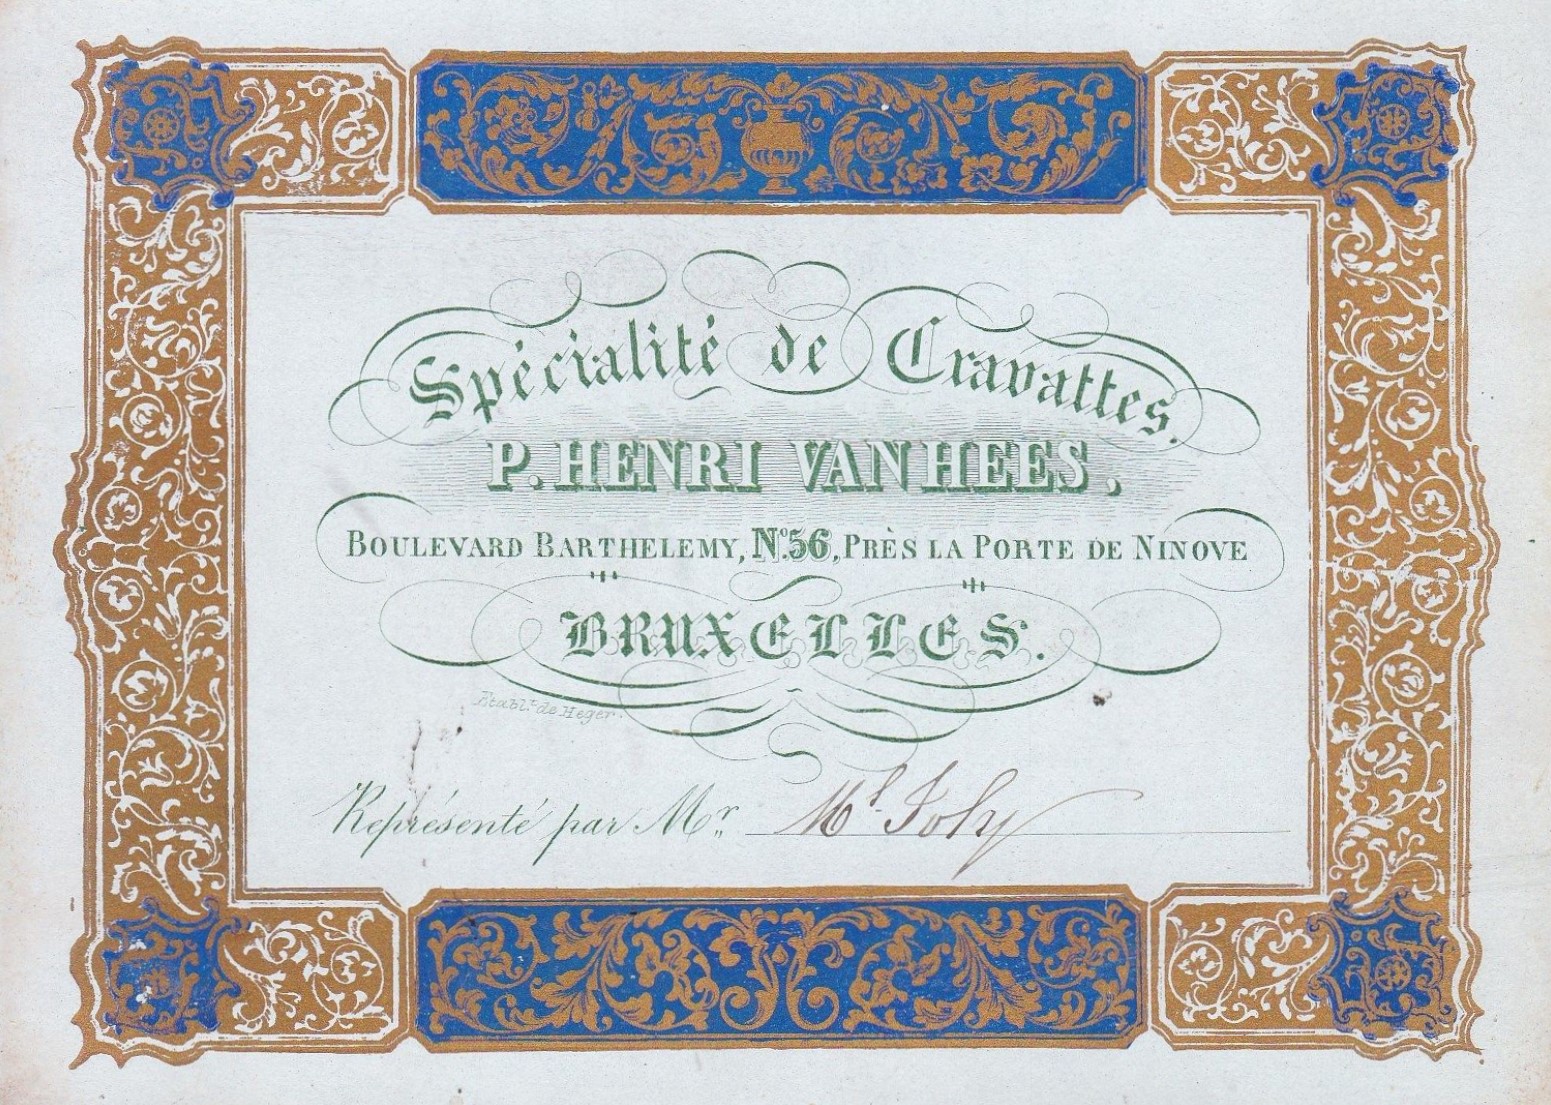 Spécialité de Cravattes.
P. HENRI VAN HEES,
BOULEVARD BARTHELEMY, Nº 56, PRÈS LA PORTE DE NINOVE
BRUXELLES.
Établt. de Heger.
Représenté par Mr. Ml. Joly